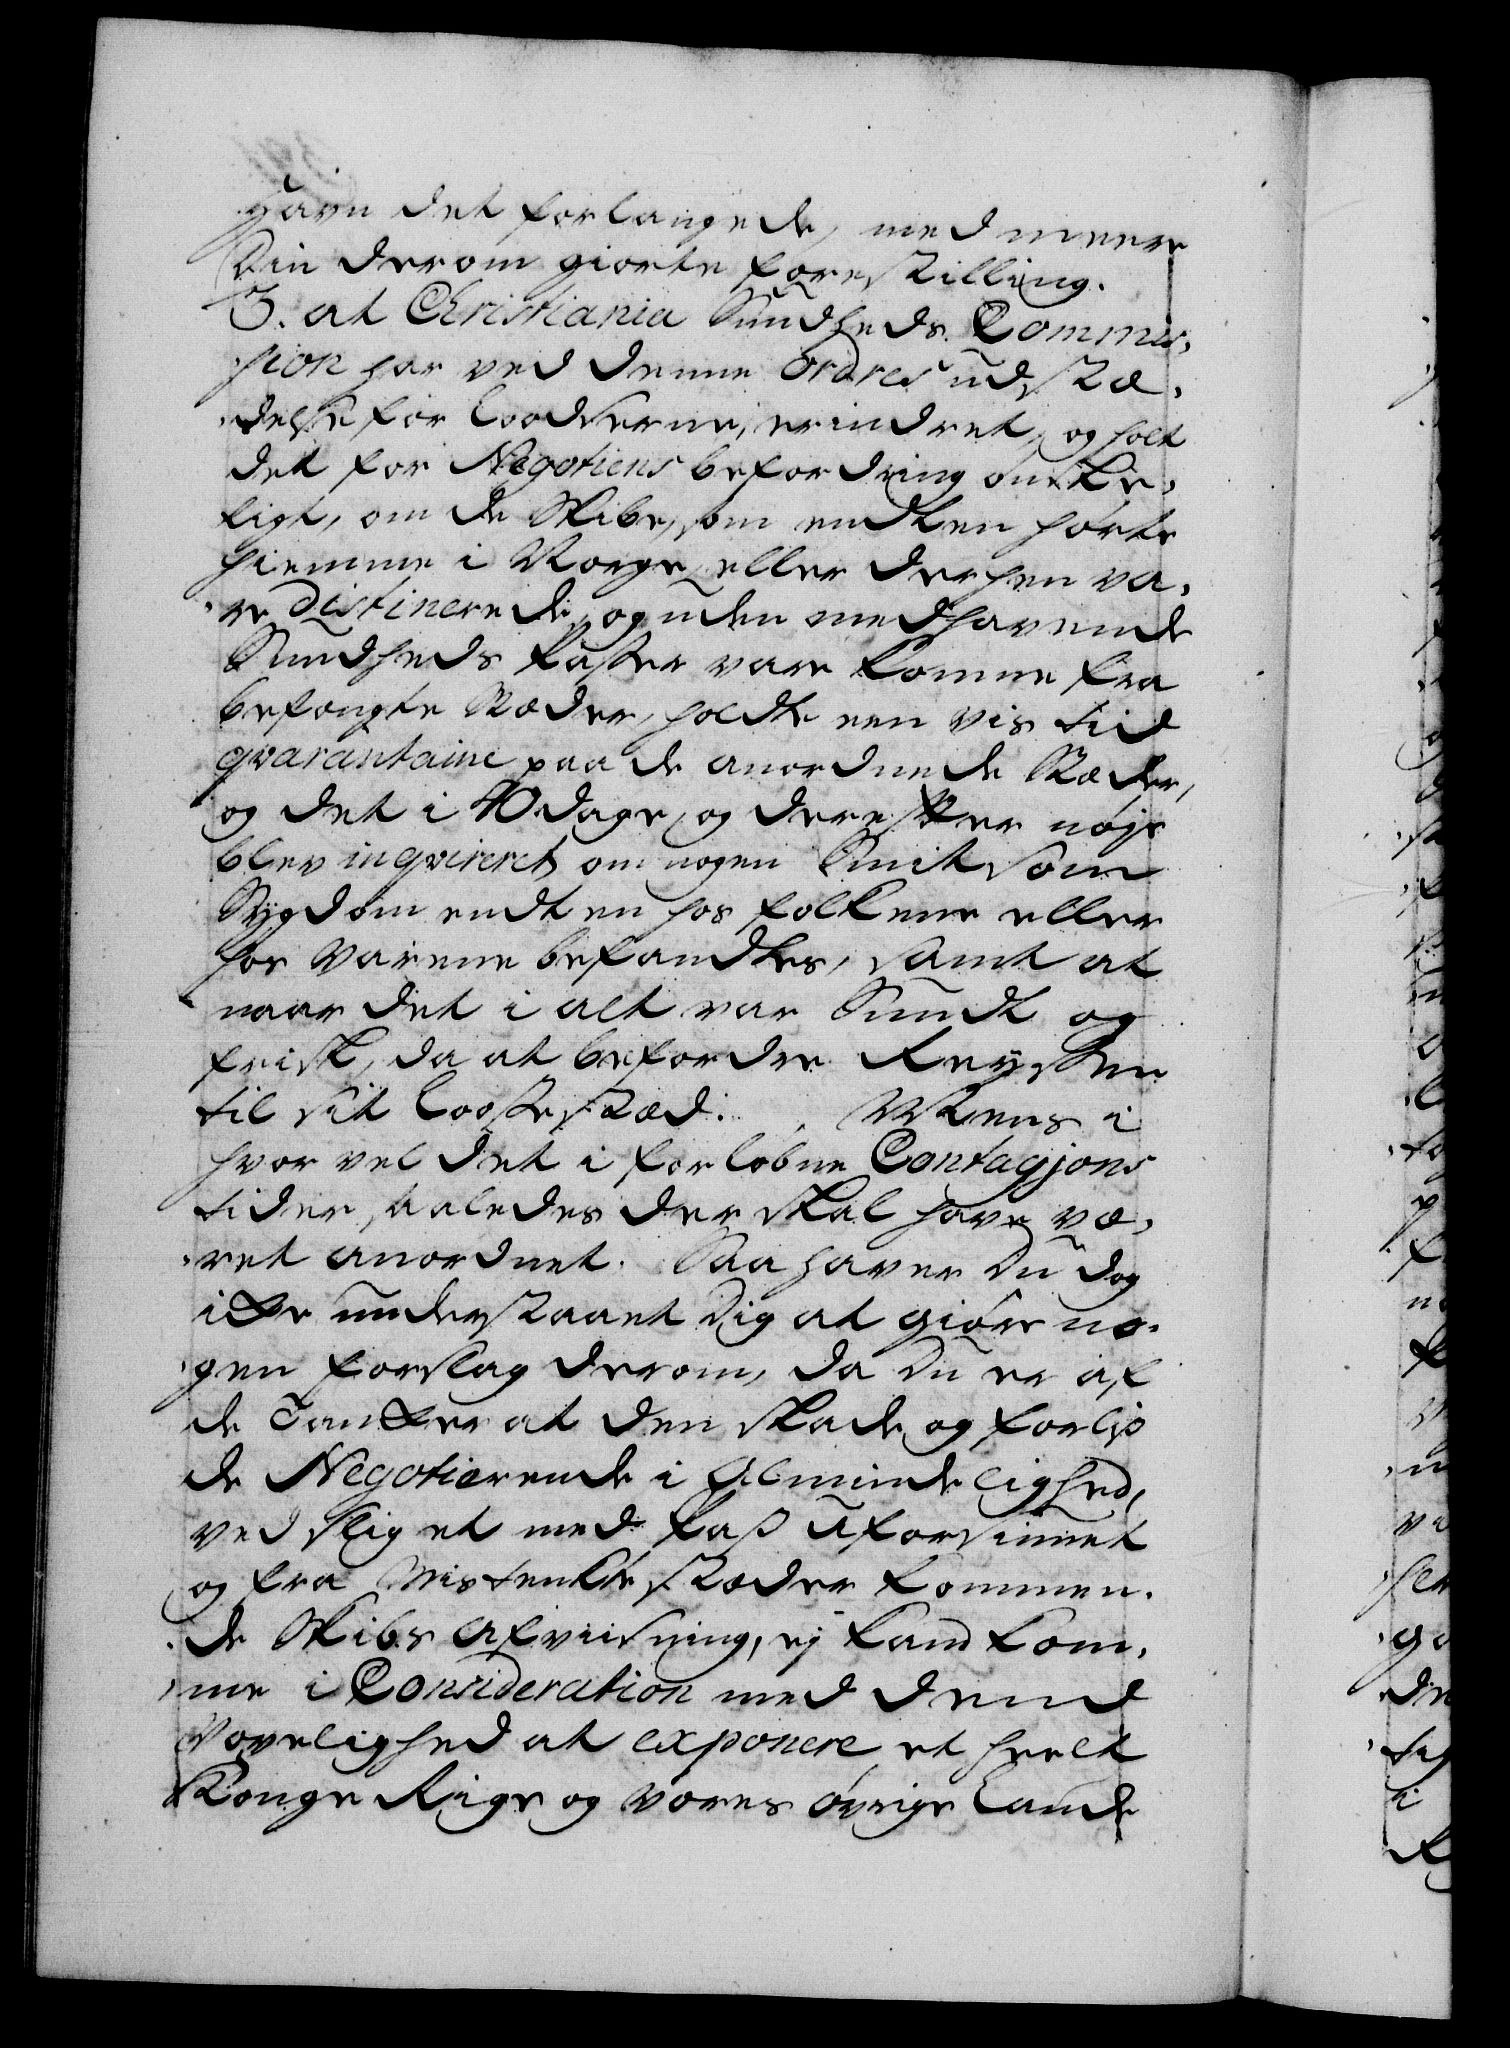 Havn det forlangede, med meere
Din derom giorte forestilling.
3. at Christiania Sundheds Commis,
sion har ved denne Ordres udstæ,
delse for Loodserne, erindret, og holt
det for Negotiens befordring ønske,
ligt, om de Skibe, som endten hørte
hiemme i Norge, eller derhen va,
re Distinerede, og uden medhavende
Sundheds Passer vare komne fra
befængte Stæder, holdte een vis tid
qvarantaine paa de anordnede Stæder,
og det i 40 dage, og derefter nøje
blev inqvireret, om nogen Smitsom
Sygdom endten hos folkene eller
hos Varene befandtes, samt at
naar det i alt var Sundt og
frisk, da at befordre Reysen
til sit Losse stæd. Men s i
hvor vel det i forløbne Contagions
tider saaledes der skal have væ,
ret anordnet. Saa haver Du dog
ikke understaaet Dig at giøre no,
gen forslag derom, da Du er af
de Tanker at den skade og forlis
de Negotierende i Almindelighed,
ved slig et med Pass uforsiunet
og fra Mistenkte stæder kommen,
de Skibs Afviisning, ej kand kom,
me i Consideration med dend
Vovelighed at exponere et heelt
Konge Rige og Vores øvrige Lande